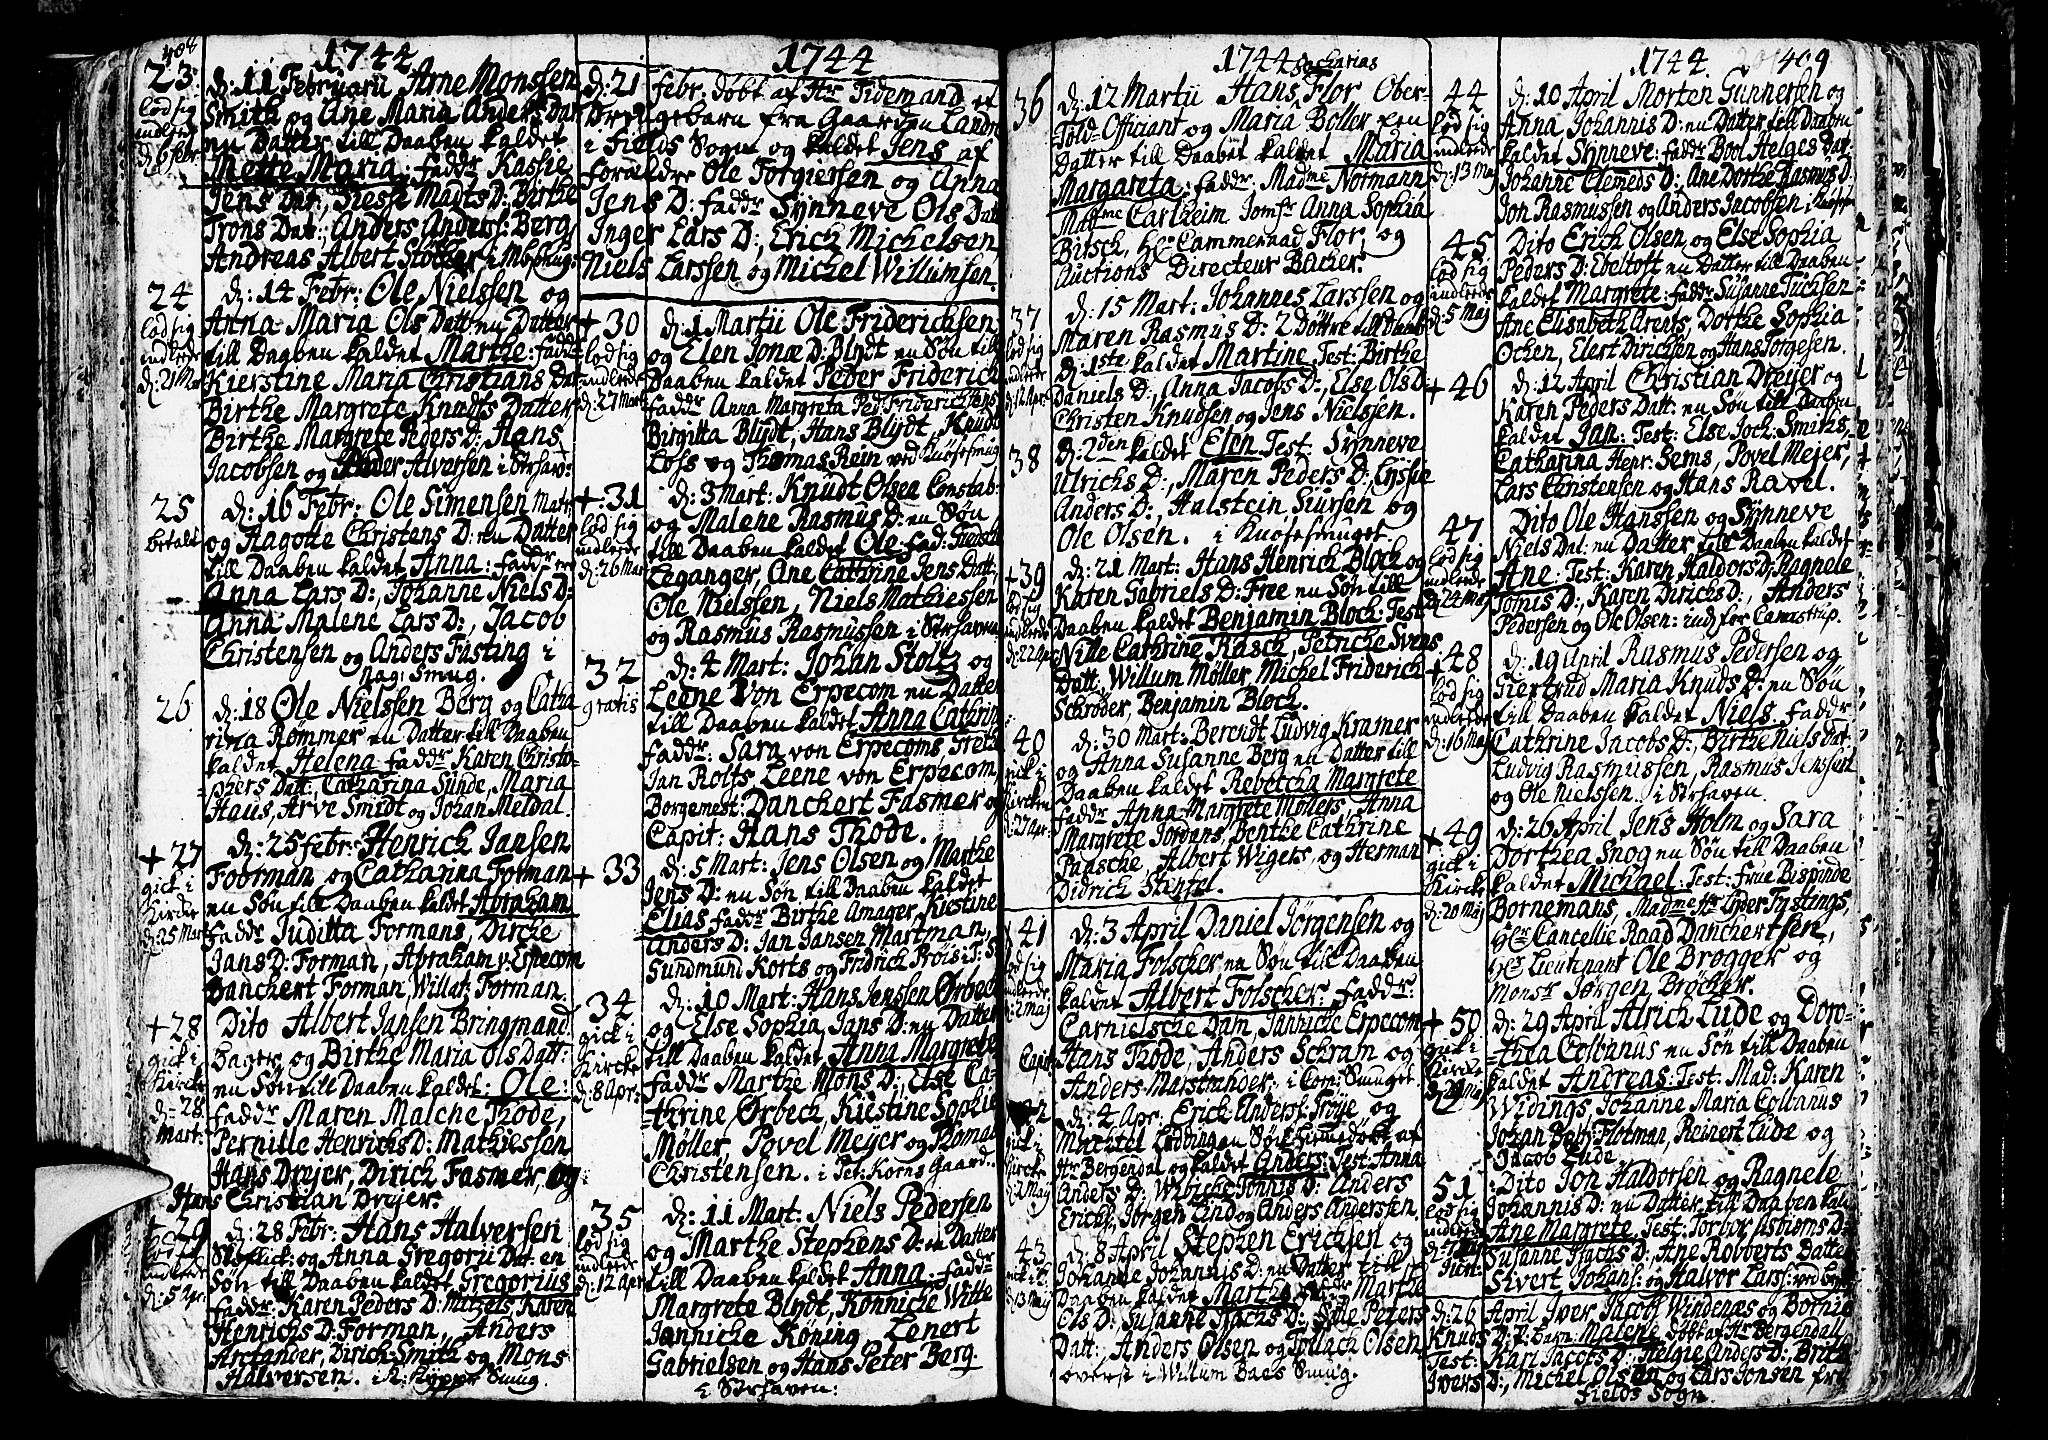 408
1744
23
lod sig
indlede
d: 11 Februarii Arne Monssen
Smith og Ane Maria Anders Dat
en Datter till Daaben kaldet
Mette Maria: faddr Kassie
Jens Dat, Siesse Madts D: Birthe
Trons Dat: Anders Anders: Berg
Andreas Albert Støcker i
24
lod sig
indlede
d: 14 Febr: Ole Nielssen og
Anna Maria Ols Datt: en Datter
till Daaben kaldet Marthe: fadd:
Kierstine Maria Christians Dat
Birthe Margrete Knudts Datter
Birthe Margrete Peders D: Hans
Jacobsen og Peder Alversen i Strhav:
25
betalt
d: 16 Febr: Ole Simensen Matr:
og Aagotte Christens D: en Datter
till Daaben kaldet Anna: faddr er
Anna Lars D:, Johanne Niels D:
Anna Malene Lars D:, Jacob
Christensen og Anders Fasting i
Nag: Smug.
26
d: 18 Ole Nielssen Berg og Catha
rina Rømmer en Datter till Daaben
kaldet Helena faddr Karen Christo-
phers Datt: Catharina Sunde, Maria
Haus, Arve Smidt og Johan Meldal.
+ 27
gick i
Kircke
d: 25 Mart
d: 25 febr: Henrich Jansen
Foorman og Catharina Forman
en Søn till Daaben kaldet Abraham
faddr Juditta Formans, Dirche
Jans D: Forman, Abraham v: Erpecom
Danchert Forman, Willat: Forman.
+ 28
gick i
Kircke
d: 28
Mart:
Dito Albert Jansen Bringmand
Bager, og Birthe Maria Ols Datt:
en Søn till Daaben kaldet: Ole:
faddr Maren Malene Thode,
Pernille Henrichs D: Mathiessen
Hans Drejer, Dirich Fasmer, og
Hans Christian Drejer.
+ 29
lod sig
indlede
d: 5 Apr:
d: 28 Febr: Hans Halversen
og Anna Gregorii Dat: en
Søn till Daaben kaldet Gregorius
faddr: Karen Peders D: Mitzels, Karen
Henrichs D: Forman, Anders
Arctander, Dirich Smith og Mons
Halversen. Smug.
1744
d: 21 febr: døbt af Hr Tidemand et
Drengebarn fra Gaarden Landre
i Fields Sogn og kaldet Jens af
Forældre Ole Torgiersen og Anna
Jens D: faddr Synneve Ols Datt
Inger Lars D:, Erich Michelsen
Niels Larssen og Michel Willumsen.
+ 30
lod sig
indlede
d: 27 Mart
d: 1 Martii Ole Friderichsen
og Elen Jonæ D: Blydt en Søn till
Daaben kaldet Peder Friderich
faddr Anna Margreta Ped: Friderichsens
Birgitta Blydt, Hans Blydt, Knudt
Loss og Thomas Rein ved Knøsesmug
+ 31
lod sig
indlede
d: 26 Mart
d: 3 Mart: Knudt Olsen Constab-
og Malene Rasmus D: en Søn
till Daaben kaldet Ole fad:
Leganger, Ane Cathrine Jens Datt,
Ole Nielssen, Niels Mathiessen
og Rasmus Rasmussen i Strhaven
32
gratis
d: 4 Mart: Johan Stoltz og
Leene von Erpecom en Datter
till Daaben kaldet Anna Cathrin
faddr: Sara von Erpecoms,
Jan Rolfs Leene von Erpecom
Borgemest: Danchert Fasmer og
Capit: Hans Thode.
+ 33
d: 5 Mart: Jens Olsen og Marthe
Jens D: en Søn till Daaben kaldet
Elias faddr Birthe Amager, Kirstine
Anders D: Jan Jansen Martman,
Sundmund Korts og Fridrich Frøis i
34
gick i
Kircke
d: 8 Apr:
d: 10 Mart: Hans Jenssen Ørbech
og Else Sophia Jans D: en Datter
till Daaben kaldet Anna Margrete
faddr Marthe Mons D: Else Ca-
thrine Ørbech, Kirstine Sophie
Møller, Povel Meyer og Thomas
Christensen. i Pet: Korns Gaard.
35
lod sig
indlede
d: 12 apr
d: 11 Mart: Niels Pedersen
og Marthe Stephens D: en Datter
till Daaben kaldet Anna. fadd:
Margrete Blydt, Konnicke Witte
Jannicke Köning, Lenert
Gabrielsen og Hans Peter Berg
i Strhaven:
1744
36
d: 12 Martii Hans Zacharias Flor Ober-
Told-Officiant og Maria Bøller een
Datter till Daaben kaldet Maria
Margareta: faddr. Madme Normann
Madme Carlheim Jomfr Anna Sophia
Birsch, Hr Cammeraad Flor, og
Auctions Directeur Bacher.
37
lod sig
indlede
d: 15 Mart: Johannes Larssen og
Maren Rasmus D: 2 Døttre till Daab:
d: 1ste kaldet Martine. Test: Birthe
Daniels D:, Anna Jacobs D:, Else Ols D:
Christen Knudsen og Jens Nielssen.
38
d: 2den kaldet Elen Test: Synneve
Ulrichs D:, Maren Peders D:, Lyssie
Anders D:, Halstein Siursen og
Ole Olsen. i Knøsesmuget.
+ 39
lod sig
indlede
d: 22 apr
d: 21 Mart: Hans Henrich Bloch og
Karen Gabriels D: Free en Søn till
Daaben kaldet Benjamin Bloch: Test
Nille Cathrine Rasch, Petricke Svens
Datt., Willum Møller, Michel Friderich
Schröder, Benjamin Bloch.
40
gick i
Kircken
d: 27 apr:
d: 30 Mart: Berendt Ludvig Kramer
og Anna Susanne Berg en Datter till
Daaben kaldet Rebeccha Margrete
faddr Anna Margrete Møllers, Anna
Margrete Jordans, Benthe Cathrine
Paasche, Albert Wigers, og Herman
Didrich Stapfel.
41
lod sig
indlede
d: 2 maj
d: 3 April Daniel Jörgensen og
Maria Folscher en Søn till Daaben
kaldet Albert Folscher: faddr:
Carnielsche Dam, Jannicke Erpecom
Capit:
Hans Thode, Anders Schram og
Anders Marstrander, i Com: Smuget
gick i
Kircke
d: 2 Maj
d: 4 Apr: Erich Anders: Trøje og
Machtel Lydding en Søn hiemedøbt af
Hr Bergendal og kaldet Anders: Test: Anna
Anders D: Wibicke Tønnis D: Anders
Erichs: Jørgen Lind og Anders Anderssen.
43
d: 8 April Stephen Ericksen og
Johanne Johannis D: en Datter till
Daaben kaldet Marthe faddr Martha
Ols D:, Susanne Isachs D: Sille Peters
Datt:, Anders Olsen og Tollach Olssen
øverst i Willum Baels Smug.
1744
409
44
lod sig
indlede
d: 13 Maj
d: 10 April Morten Gunnersen og
Anna Johannis D: en Datter till Daaben
kaldet Synneve: fadr Boel Helges Dat:
Johanne Clemeds D:, Ane Dorthe Rasmus D:
Jon Rasmussen og Anders Jacobsen i
45
lod sig
indlede
d: 5 Maj
Dito Erich Olsen og Else Sophia
Peders D: Ebeltoft en Datter till Daaben
kaldet Margrete: faddr Susanne Tuchsen
Ane Elisabeth Arents, Dorthe Sophia
Ochen, Elert Dirichsen og Hans Jörgesen.
+ 46
d: 12 April Christian Drejer og
Karen Peders Datt: en Søn till Daaben
kaldet Jan: Test: Else Joch: Smiths,
Catharina Henr: Sems, Povel Mejer,
Lars Christensen og Hans Ravel.
47
lod sig
indlede
d: 24 Maj
Dito Ole Hanssen og Synneve
Niels Dat: en Datter till Daaben kaldet
Ane: Test: Karen Haldors D, Ragnele
Tomis D:, Karen Dirichs D:, Anders
Pedersen og Ole Olsen: ind for Camistrup.
+ 48
lod sig
indlede
d: 16 Maj
d: 19 April Rasmus Pedersen og
Giertrud Maria Knuds D: en Søn
till Daaben kaldet Niels. faddr
Cathrine Jacobs D:, Birthe Niels Dat:
Ludvig Rasmussen, Rasmus Jenssen
og Ole Nielssen. i Strhaven.
+ 49
gick i
Kircke
d: 20 Maj
d: 26 April Jens Holm og Sara
Dorthea Snog en Søn till Daaben
kaldet Michael: Test: Frue Bispinde
Bornemans, Madme Hr Lyder Fystings,
Hr Cancellie Raad Danchertsen,
Hr Lieutenant Ole Brøgger og
Monsr Jørgen Brøcker.
+ 50
gick i
Kircke
d: 29 April Alrich Lude og Doro-
thea Colbanus en Søn till Daaben
kaldet Andreas: Test: Mad: Karen
Widings, Johanne Maria Colbanus
Johan Forman, Reinert Lude og
Jacob Lude
51
lod sig
indlede
Dito Jon Haldorsen og Ragnele
Johannis D: en Datter till Daaben kald
Ane Margrete. Test: Torbor Asbiorns D:
Susanne Isachs D:, Ane Robberts Datter
Sivert Johans: og Halver Larss:
d: 26 April Iver Jacobs: Windenæs og Bornil
Knuds D: P: Barn: Malene døbt af Hr Bergendall
Test: Kari Jacobs D:, Helgie Anders D:, Brite
Ivers D:, Michel Olsen og Lars Jonsen fra
Fields Sogn.